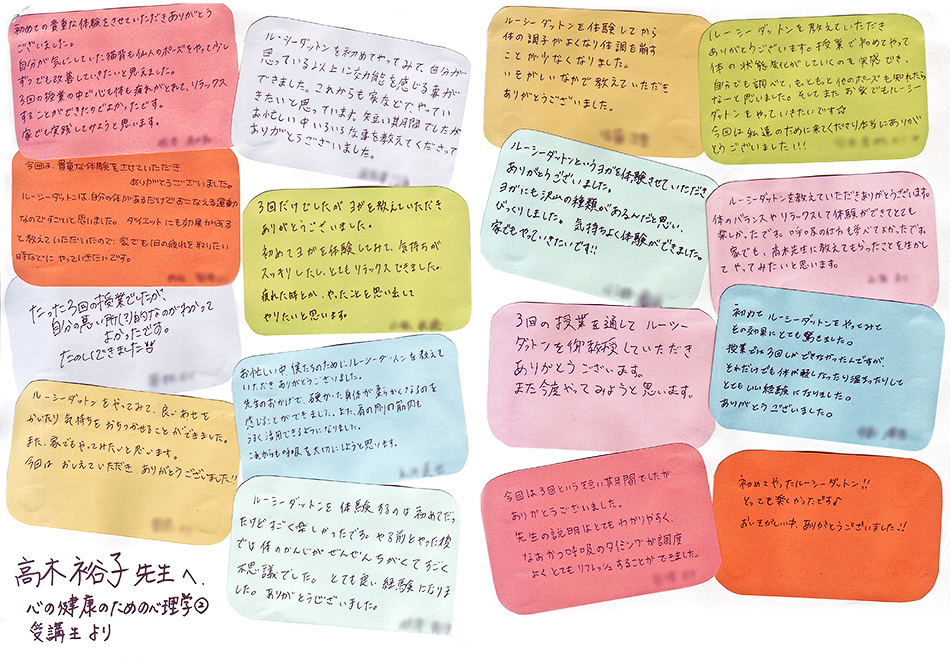 初めての貴重な体験をさせていただきありがとう
ございました。
自分が気にしていた猫背も仙人のポーズをやって少し
ずつでも改善していきたいと思えました。
3回の授業の中で心も体も疲れがとれて、リラックス
することができたのでよかったです。
家でも実践してみようと思います。
今回は、貴重な体験をさせていただき
ありがとうございました。
ルーシーダットンは自分の体があるだけでおこなえる運動
なのですごいと思いました。ダイエットにも効果がある
と教えていただいたので、家でも1日の疲れを取りたい
時などに やっていきたいです。
たった3回の授業でしたが、
自分の悪い所(?)的なのがわかって
よかったです。
たのしくできました!!
ルーシーダットンをやってみて、良いあせを
かいたり 気持ちを おちつかせることができました。
また、家でもやってみたいと思います。
今回は おしえていただき ありがとうございました!!
高木裕子先生へ.
心の健康のための心理学②
受講生より
ルーシーダットンを初めてやってみて、自分が
思っている以上に交力能を感じる事が
できました。これからも家などでやってい
きたいと思っています。短い期間でしたが
お忙しい中いろいろな事を教えてくださって
ありがとうございました。
3回だけでしたが ヨガを教えていただき
ありがとうございました。
初めてヨガを体験してみて、気持ちが
スッキリしたし、とてもリラックスできました。
疲れた時とか、やったことを思い出して
やりたいと思います。
お忙しい中 僕たちのためにルーシーダットンを教えて
いただき ありがとうございました。
先生のおかげで、硬かった身体が柔らかくなるのを
感じることができました。また、肩の周りの筋肉も
うまく活用できるようになりました。
これからも呼吸を大切にしようと思います。
ルーシーダットンを体験するのは初めてだっ
たけどすごく楽しかったです。やる前とやった後
では体のかんじがぜんぜんちがくてすごく
不思議でした。とても良い経験になりま
した。ありがとうございました。
ルーシーダットンを体験してから
体の調子がよくなり体調を崩す
ことが少なくなりました。
いそがしいなかで教えていただき
ありがとうございました。
ルーシーダットンというヨガを体験させていただき
ありがとうございました。
ヨガにも沢山の種類があるんだと思い、
びっくりしました。気持ちよく体験ができました。
家でもやっていきたいです!!
3回の授業を通して ルーシー
ダットンを御教授していただき
ありがとうございます。
また今度やってみようと思います。
今回は3回という短い期間でしたが
ありがとうございました。
先生の説明はとてもわかりやすく、
なおかつ呼吸のタイミングが調度
よくとてもリフレッシュすることができました。
ルーシーダットンを教えていただき
ありがとうございます。授業で初めてやって
体の状態変化がしていくのを実感でき、
自分でも調べて、もっともっと他のポーズも知れたら
なーと思いました。そしてまたお家でもルーシー
ダットンをやっていきたいです☆
今回は私達のために来てくださり本当にありが
とうございました!!!
ルーシーダットンを教えていただきありがとうございます。
体のバランスやリラックスして体験ができてとても
楽しかったです。呼吸の仕方も学べてよかったです。
家でも、高木先生に教えてもらったことを生かし
てやってみたいと思います。
初めて ルーシーダットンをやってみて
その効果にとても驚きました。
授業では3回しかできなかったんですが、
それだけでも体が軽くなったり温まったりして
とてもいい経験になりました。
ありがとうございました。
初めてやったルーシーダットン!!
とっても楽しかったです♪
おいそがしい中、ありがとうございました!!